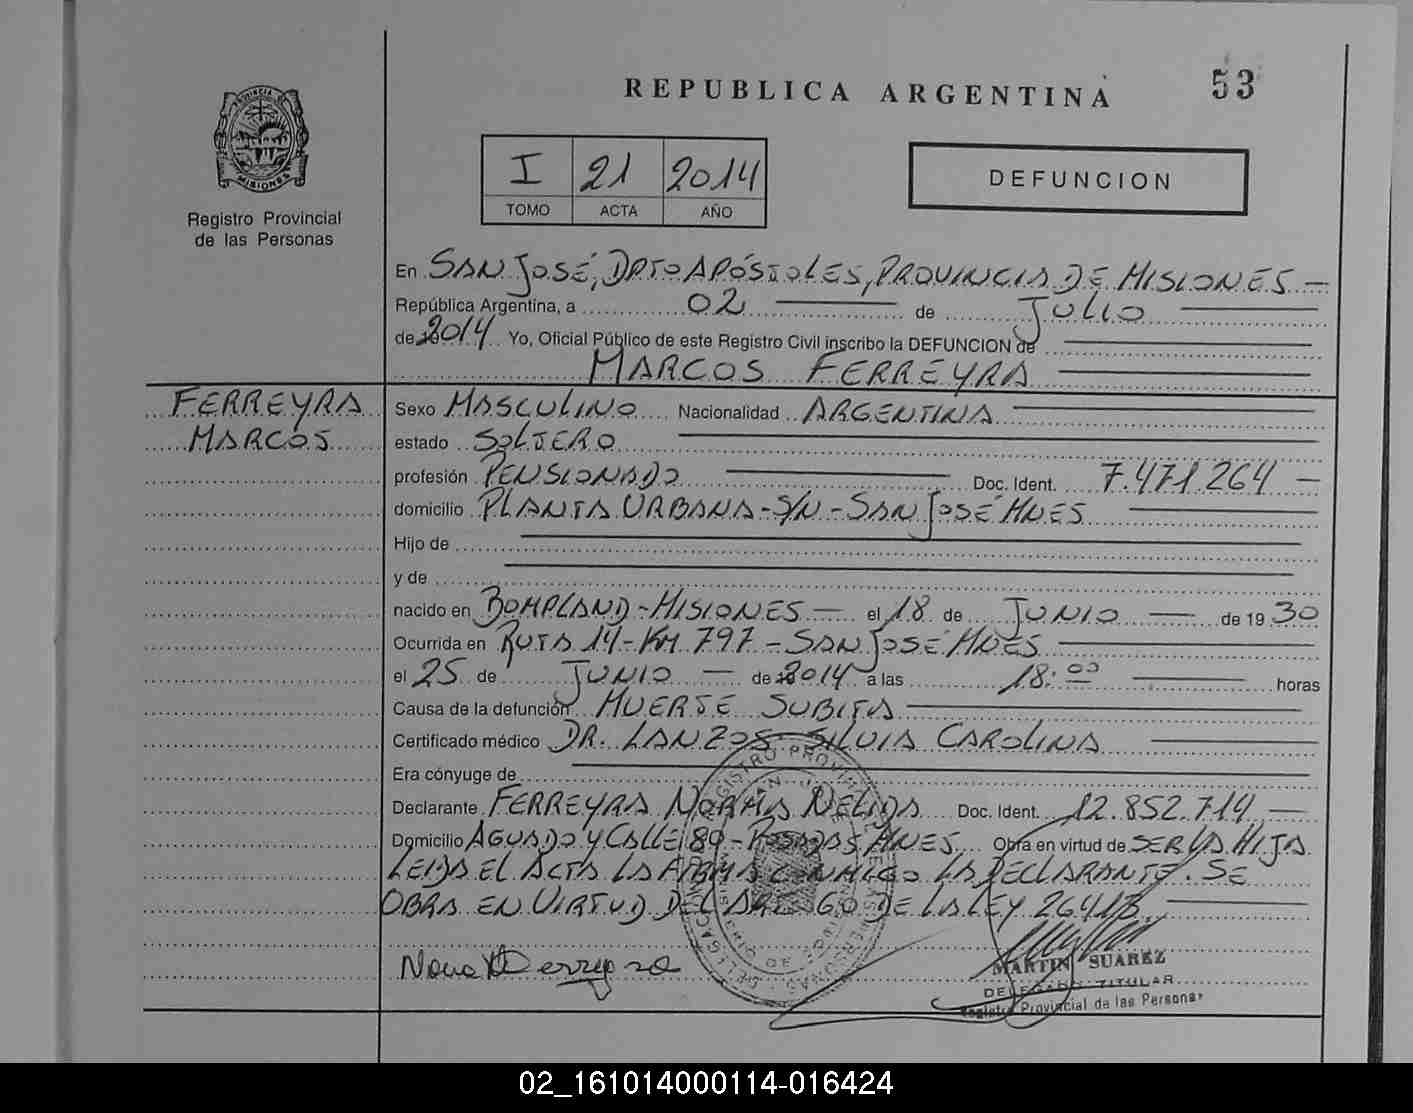 53
REPUBLICA ARGENTINA
PROVINCIA DE
MISIONES
Registro Provincial
de las Personas
I 21 2014
TOMO ACTA AÑO
DEFUNCION
En SAN JOSÉ, DPTO APÓSTOLES, PROVINCIA DE MISIONES
República Argentina, a 02 de JULIO
de 2014 Yo, Oficial Público de este Registro Civil inscribo la DEFUNCION de
MARCOS FERREYRA
FERREYRA
MARCOS
Sexo MASCULINO Nacionalidad ARGENTINA
estado SOLTERO
profesión PENSIONADO Doc. Ident. 7.471.264
domicilio PLANTA URBANA - S/N - SAN JOSÉ MNES
Hijo de
y de
nacido en BOMPLAND - MISIONES el 18 de JUNIO de 1930
Ocurrida en RUTA 14 - KM 797 - SAN JOSÉ MNES
el 25 de JUNIO de 2014 a las 18:00 horas
Causa de la defunción MUERTE SUBITA
Certificado médico DR. LANZOS SILVIA CAROLINA
Era cónyuge de
Declarante FERREYRA NORMA NELIDA Doc. Ident. 12.852.714
Domicilio AGUADO Y CALLE 89 - POSADAS MNES Obra en virtud de SER LA HIJA
LEIDA EL ACTA LA FIRMA CONMIGO LA DECLARANTE. SE
OBRA EN VIRTUD DEL DE LA LEY 26413
MARTIN SUAREZ
DELEGADO TITULAR
Registro Provincial de las Personas
02_161014000114-016424